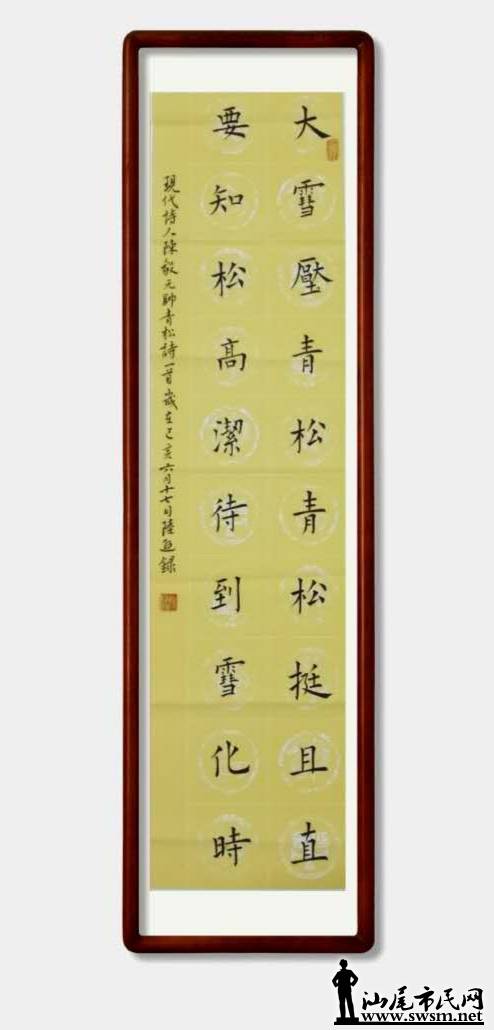 大雪壓青松青松挺且直
要知松高潔待到雪化時
現代詩人陳毅元帥青松詩一首歲在己亥六月十七日陸錄
汕尾市民网
www.swsm.net